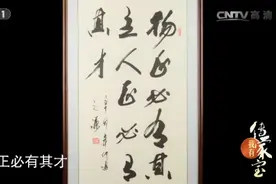 1
CNTV 高清
物正必有其
主人正必有
其才
正必有其才
我有
传家宝